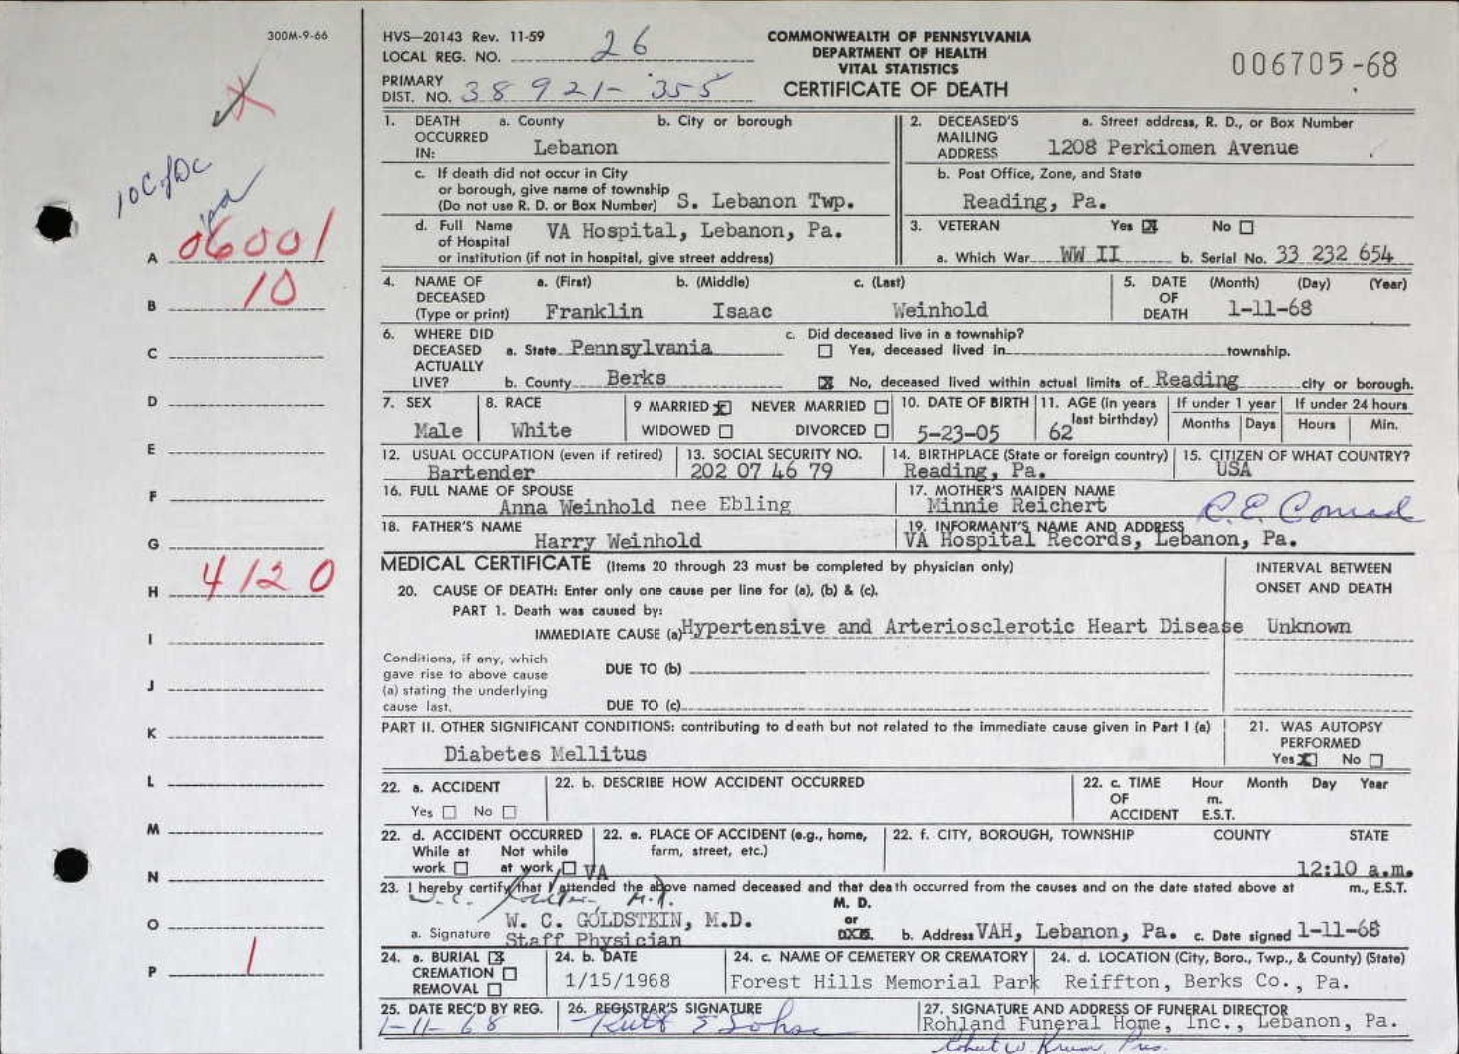 300M-9-66
HVS—20143 Rev. 11-59
LOCAL REG. NO. 26
PRIMARY
DIST. NO. 38 921- 355
COMMONWEALTH OF PENNSYLVANIA
DEPARTMENT OF HEALTH
VITAL STATISTICS
CERTIFICATE OF DEATH
006705-68
10CofDC
A 06001
B 10
C
D
E
F
G
H 4120
I
J
K
L
M
N
O
P 1
1. DEATH OCCURRED IN: a. County b. City or borough
Lebanon
c. If death did not occur in City
or borough, give name of township
(Do not use R. D. or Box Number) S. Lebanon Twp.
d. Full Name
of Hospital VA Hospital, Lebanon, Pa.
or institution (if not in hospital, give street address)
2. DECEASED'S MAILING ADDRESS a. Street address, R. D., or Box Number
1208 Perkiomen Avenue
b. Post Office, Zone, and State
Reading, Pa.
3. VETERAN Yes ☒ No ☐
a. Which War WW II b. Serial No. 33 232 654
4. NAME OF DECEASED (Type or print) a. (First) b. (Middle) c. (Last)
Franklin Isaac Weinhold
5. DATE OF DEATH (Month) (Day) (Year)
1-11-68
6. WHERE DID DECEASED ACTUALLY LIVE? a. State Pennsylvania
b. County Berks
c. Did deceased live in a township?
☐ Yes, deceased lived in township.
☒ No, deceased lived within actual limits of Reading city or borough.
7. SEX
Male
8. RACE
White
9 MARRIED ☒ NEVER MARRIED ☐
WIDOWED ☐ DIVORCED ☐
10. DATE OF BIRTH
5-23-05
11. AGE (in years last birthday)
62
If under 1 year
Months Days
If under 24 hours
Hours Min.
12. USUAL OCCUPATION (even if retired)
Bartender
13. SOCIAL SECURITY NO.
202 07 46 79
14. BIRTHPLACE (State or foreign country)
Reading, Pa.
15. CITIZEN OF WHAT COUNTRY?
USA
16. FULL NAME OF SPOUSE
Anna Weinhold nee Ebling
17. MOTHER'S MAIDEN NAME
Minnie Reichert
R.E. Conrad
18. FATHER'S NAME
Harry Weinhold
19. INFORMANT'S NAME AND ADDRESS
VA Hospital Records, Lebanon, Pa.
MEDICAL CERTIFICATE (Items 20 through 23 must be completed by physician only)
INTERVAL BETWEEN
ONSET AND DEATH
20. CAUSE OF DEATH: Enter only one cause per line for (a), (b) & (c).
PART 1. Death was caused by:
IMMEDIATE CAUSE (a) Hypertensive and Arteriosclerotic Heart Disease Unknown
Conditions, if any, which
gave rise to above cause
(a) stating the underlying
cause last.
DUE TO (b)
DUE TO (c)
PART II. OTHER SIGNIFICANT CONDITIONS: contributing to death but not related to the immediate cause given in Part I (a)
Diabetes Mellitus
21. WAS AUTOPSY
PERFORMED
Yes ☒ No ☐
22. a. ACCIDENT
Yes ☐ No ☐
22. b. DESCRIBE HOW ACCIDENT OCCURRED
22. c. TIME OF ACCIDENT Hour Month Day Year
m.
E.S.T.
22. d. ACCIDENT OCCURRED
While at work ☐ Not while at work ☐
22. e. PLACE OF ACCIDENT (e.g., home,
farm, street, etc.)
22. f. CITY, BOROUGH, TOWNSHIP COUNTY STATE
VA
12:10 a.m.
23. I hereby certify that I attended the above named deceased and that death occurred from the causes and on the date stated above at m., E.S.T.
M. D.
or
W. C. GOLDSTEIN, M.D.
a. Signature Staff Physician
b. Address VAH, Lebanon, Pa. c. Date signed 1-11-68
24. a. BURIAL ☒
CREMATION ☐
REMOVAL ☐
24. b. DATE
1/15/1968
24. c. NAME OF CEMETERY OR CREMATORY
Forest Hills Memorial Park
24. d. LOCATION (City, Boro., Twp., & County) (State)
Reiffton, Berks Co., Pa.
25. DATE REC'D BY REG.
1-11-68
26. REGISTRAR'S SIGNATURE
27. SIGNATURE AND ADDRESS OF FUNERAL DIRECTOR
Rohland Funeral Home, Inc., Lebanon, Pa.